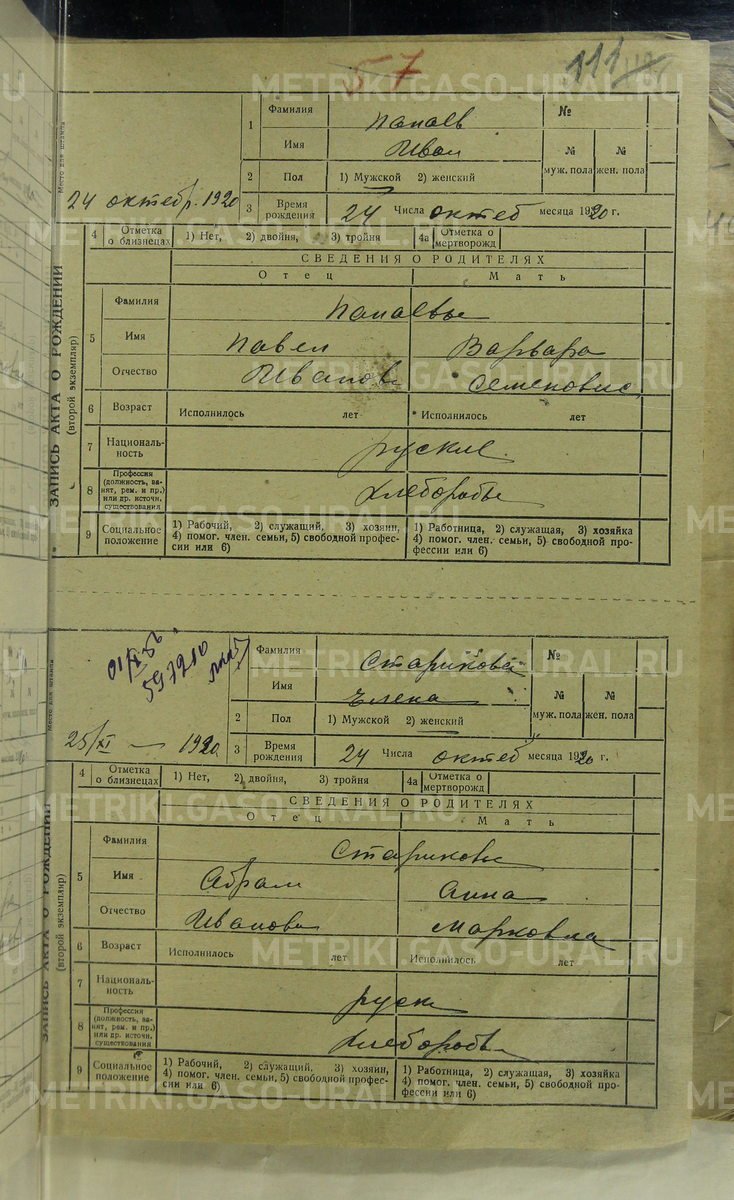 57
111
1
Фамилия
Папаев
№
Имя
Иван
№ №
2
Пол
1) Мужской 2) женский
муж. пола жен. пола
Место для штампа
24 октебр. 1920
3
Время рождения
24 Числа октеб месяца 1920 г.
4
Отметка о близнецах
1) Нет, 2) двойня, 3) тройня
4а
Отметка о мертворожд
СВЕДЕНИЯ О РОДИТЕЛЯХ
Отец
Мать
ЗАПИСЬ АКТА О РОЖДЕНИИ
(второй экземпляр)
5
Фамилия
Папаевы
Имя
Павел
Варвара
Отчество
Иванов
Семеновна
6
Возраст
Исполнилось лет
Исполнилось лет
7
Националь-
ность
руские
8
Профессия
(должность, за-
нят, рем. и пр.)
или др. источн.
существования
хлеборобы
9
Социальное
положение
1) Рабочий, 2) служащий, 3) хозяин,
4) помог. член. семьи, 5) свободной профес-
сии или 6)
1) Работница, 2) служащая, 3) хозяйка
4) помог. член. семьи, 5) свободной про-
фессии или 6)
597210
1
Фамилия
Старикова
№
Имя
Елена
№ №
2
Пол
1) Мужской 2) женский
муж. пола жен. пола
Место для штампа
25/XI — 1920
3
Время рождения
24 Числа октеб месяца 1920 г.
4
Отметка о близнецах
1) Нет, 2) двойня, 3) тройня
4а
Отметка о мертворожд
СВЕДЕНИЯ О РОДИТЕЛЯХ
Отец
Мать
ЗАПИСЬ АКТА О РОЖДЕНИИ
(второй экземпляр)
5
Фамилия
Стариковы
Имя
Абрам
Анна
Отчество
Иванов
Марковна
6
Возраст
Исполнилось лет
Исполнилось лет
7
Националь-
ность
руск
8
Профессия
(должность, за-
нят, рем. и пр.)
или др. источн.
существования
хлеборобы
9
Социальное
положение
1) Рабочий, 2) служащий. 3) хозяин,
4) помог. член. семьи, 5) свободной профес-
сии или 6)
1) Работница, 2) служащая, 3) хозяйка
4) помог. член. семьи, 5) свободной про-
фессии или 6)
METRIKI.GASO-URAL.RU